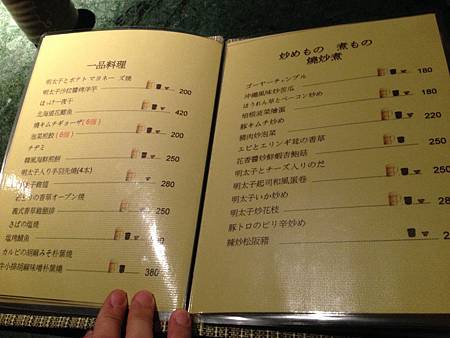 一品料理
明太子とポテトマヨネーズ焼
明太子沙拉醬烤洋芋 200
ほっけ一夜干
北海道花鯽魚 420
焼キムチギョーザ(6個)
泡菜煎餃(6個) 200
チヂミ
韓風海鮮煎餅 250
明太子入り手羽先焼(4本)
280
オーブン焼
義式香草雞腿排 250
さばの塩焼
塩烤鯖魚
カルビの胡麻みそ朴葉焼
牛小排胡麻味噌朴葉燒 380
炒めもの 煮もの
燒炒煮
ゴーヤーチャンプル
沖繩風味炒苦瓜 180
ほうれん草とベーコン炒め
培根菠菜燴蛋 180
豚キムチ炒め
豬肉炒泡菜
エビとエリンギ茸の香草
花香醬炒鮮蝦杏鮑菇 250
明太子とチーズ入りのだ
明太子起司和風蛋卷 250
明太子いか炒め
明太子炒花枝 250
豚トロのピリ辛炒め
辣炒松阪豬